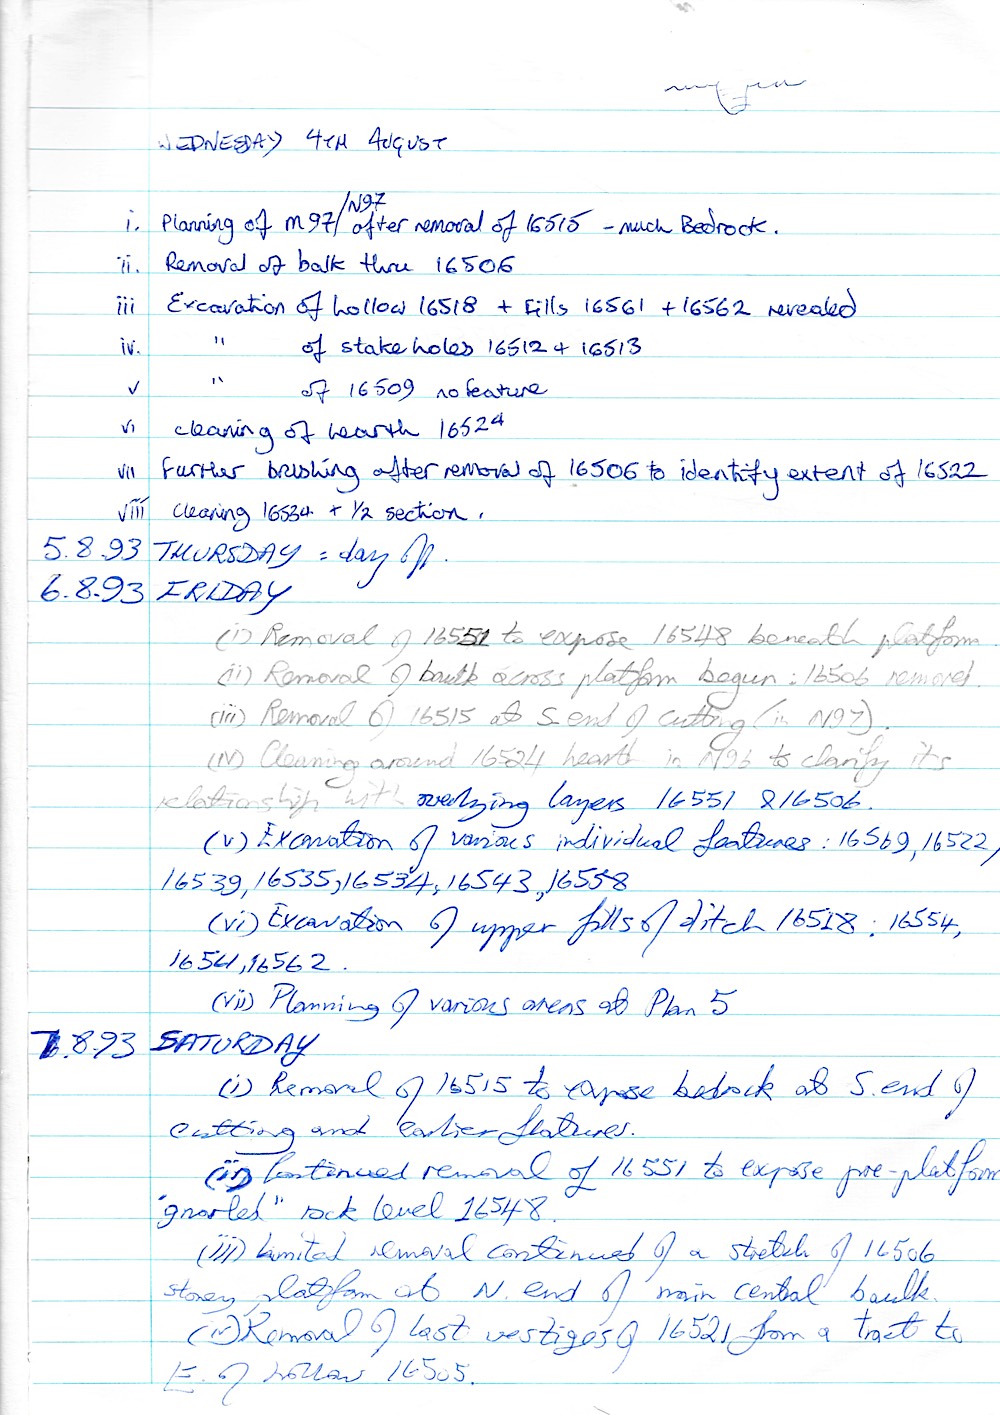 WEDNESDAY 4TH AUGUST
i. Planning of M97/N97 after removal of 16515 - much Bedrock.
ii. Removal of balk thru 16506
iii Excavation of hollow 16518 + Fills 16561 + 16562 revealed
iv. " of stake holes 16512 + 16513
v " of 16509 no feature
vi cleaning of hearth 16524
vii Further brushing after removal of 16506 to identify extent of 16522
viii Cleaning 16534 + 1/2 section.
5.8.93 THURSDAY = day off.
6.8.93 FRIDAY
(i) Removal of 16551 to expose 16548 beneath platform.
(ii) Removal of baulk across platform begun : 16506 removed.
(iii) Removal of 16515 at S. end of cutting (in N97).
(iv) Cleaning around 16524 hearth in N96 to clarify its
relationship with overlying layers 16551 & 16506.
(v) Excavation of various individual features : 16509, 16522,
16539, 16535, 16534, 16543, 16558
(vi) Excavation of upper fills of ditch 16518 : 16554,
16541, 16562.
(vii) Planning of various areas at Plan 5
7.8.93 SATURDAY
(i) Removal of 16515 to expose bedrock at S. end of
cutting and earlier features.
(ii) Continued removal of 16551 to expose pre-platform
"gnarled" rock level 16548.
(iii) Limited removal continued of a stretch of 16506
stoney platform at N. end of main central baulk.
(iv) Removal of last vestiges of 16521 from a tract to
E. of hollow 16505.